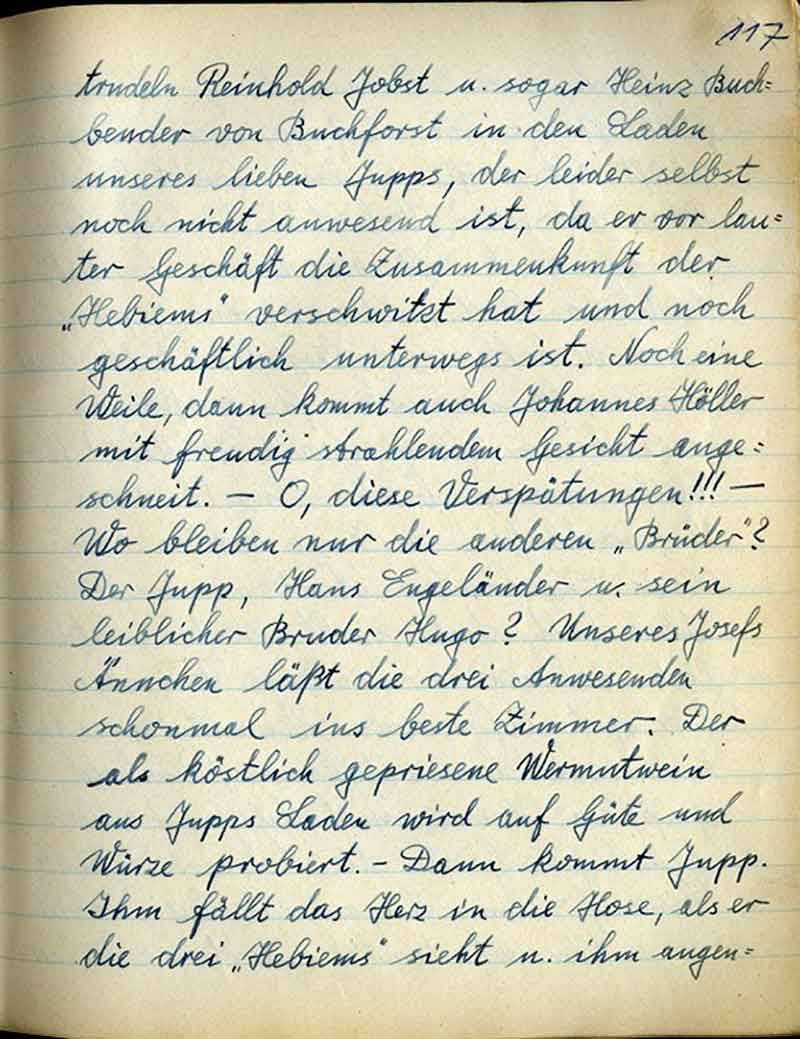 117
trudeln Reinhold Jobst u. sogar Heinz Buch=
bender von Buchforst in den Laden
unseres lieben Jupps, der leider selbst
noch nicht anwesend ist, da er vor lau=
ter Geschäft die Zusammenkunft der
„Hebiems" verschwitzt hat und noch
geschäftlich unterwegs ist. Noch eine
Weile, dann kommt auch Johannes Höller
mit freudig strahlendem Gesicht ange=
schneit. — O, diese Verspätungen!!! —
Wo bleiben nur die anderen „Brüder"?
Der Jupp, Hans Engeländer u. sein
leiblicher Bruder Hugo? Unseres Josefs
Ännchen läßt die drei Anwesenden
schonmal ins beste Zimmer. Der
als köstlich gepriesene Wermutwein
aus Jupps Laden wird auf Güte und
Würze probiert. – Dann kommt Jupp.
Ihm fällt das Herz in die Hose, als er
die drei „Hebiems" sieht u. ihm augen=